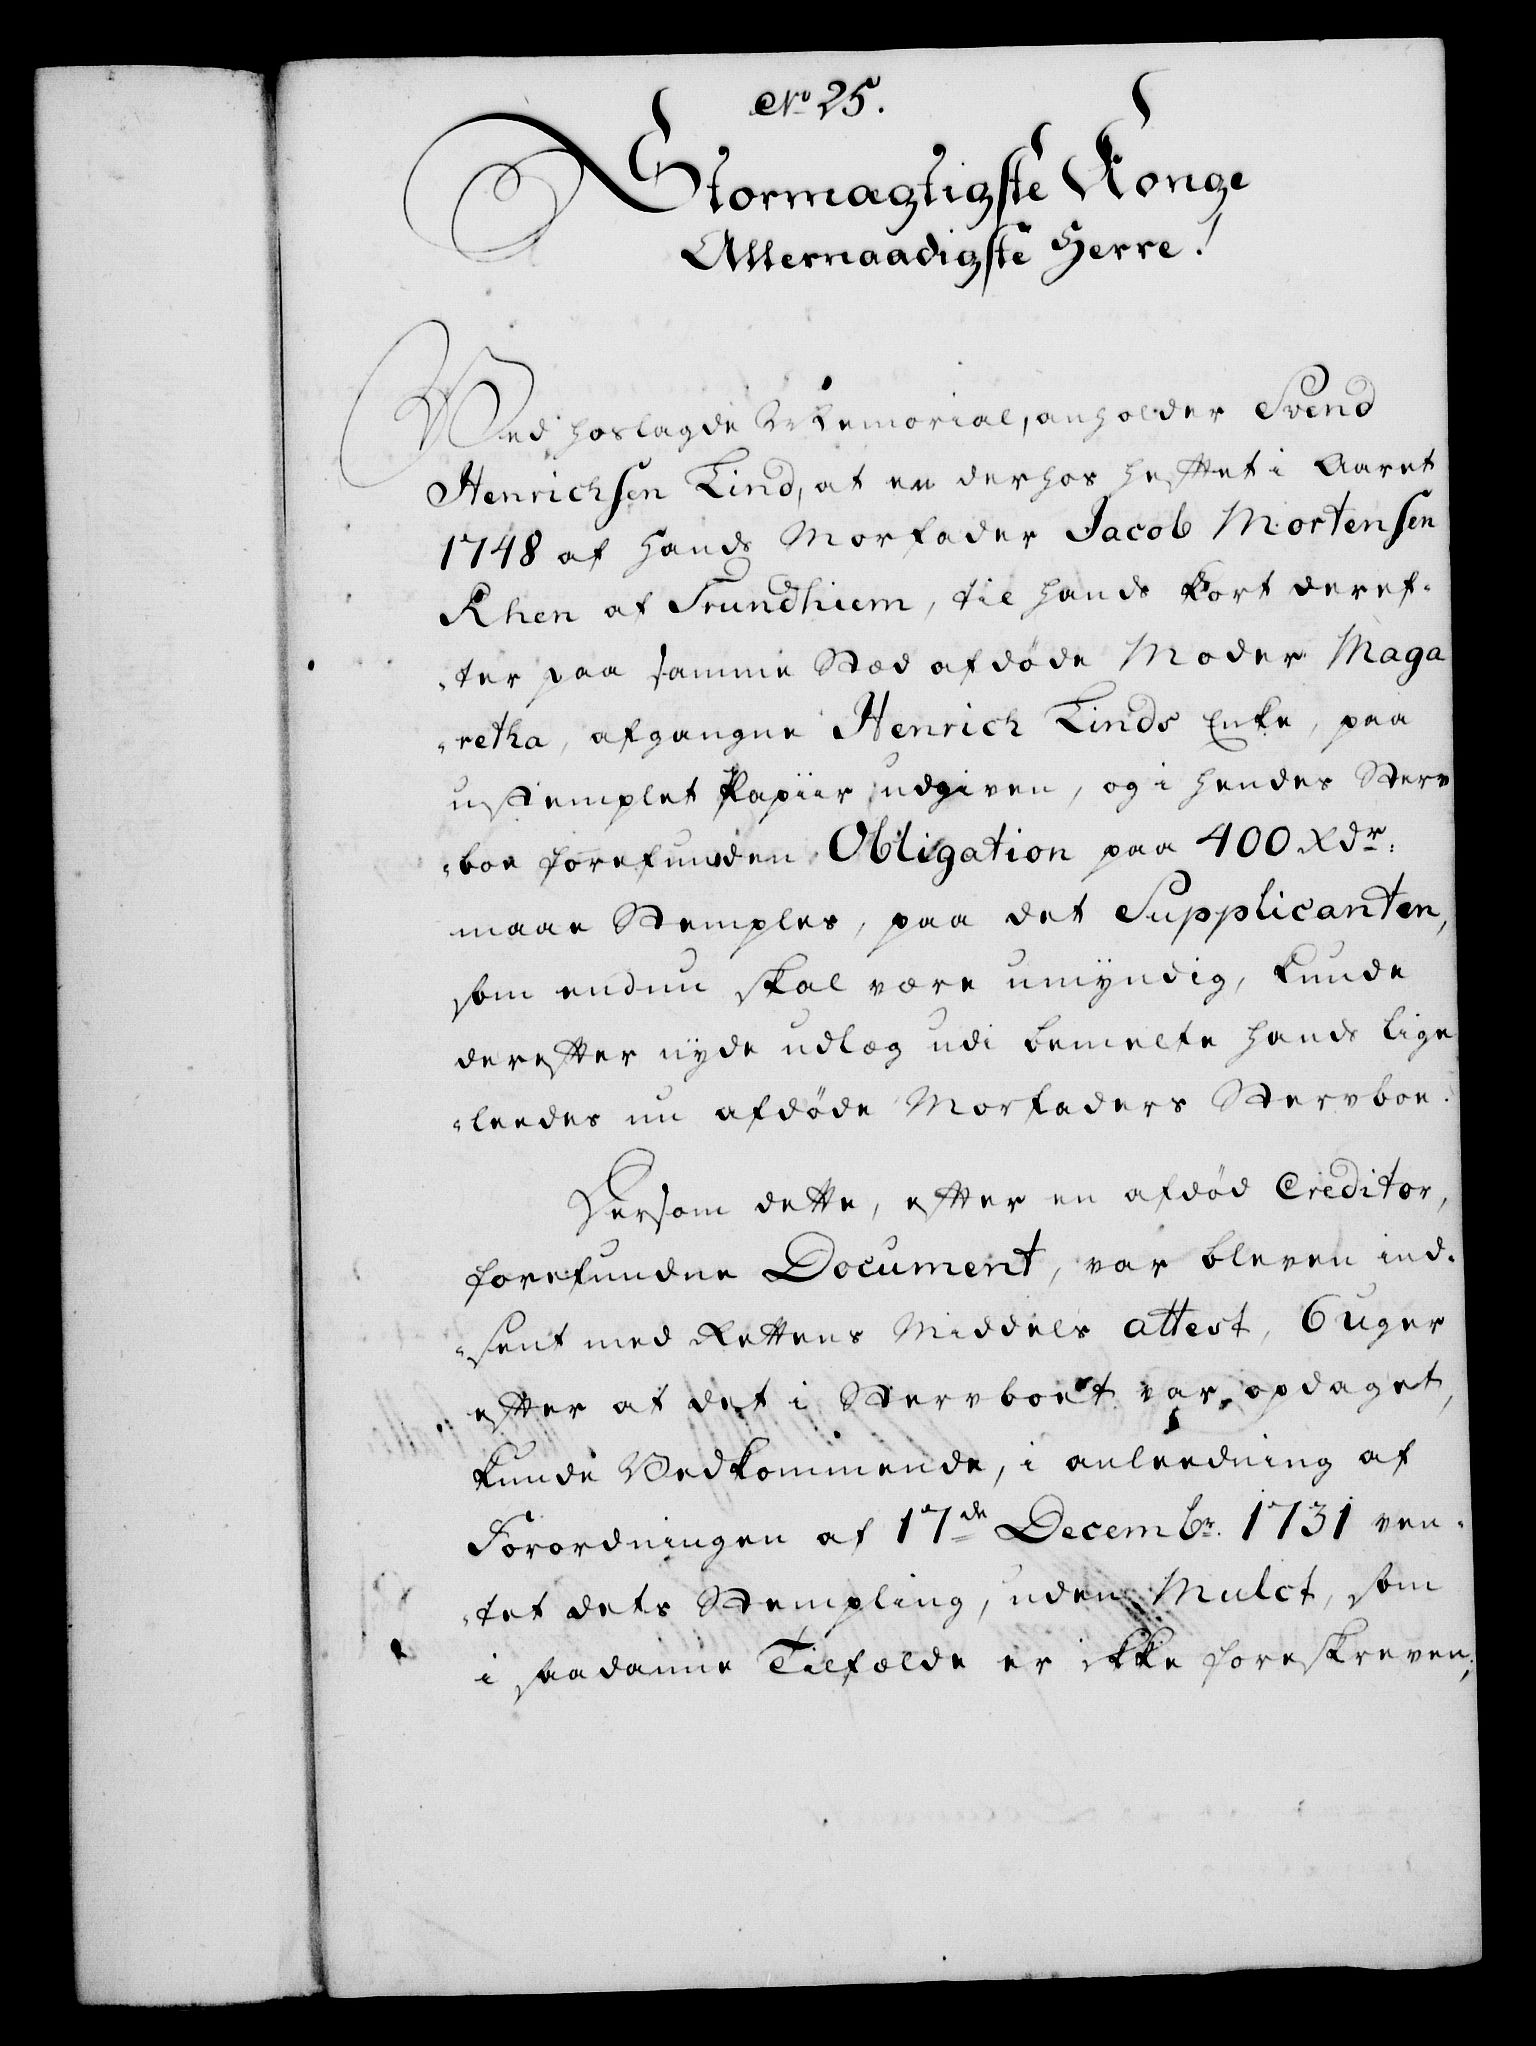 No 25.
Stormægtigste Konge
Allernaadigste Herre!
Ved hoslagde Memorial, anholder Svend
Henrichsen Lind, at en derhos heftet i Aaret
1748 af Hands Morfader Jacob Mortensen
Rhen af Trundhiem, til hands kort deref-
-ter paa samme Stæd afdøde Moder Maga
-retha, afgangne Henrich Linds Enke, paa
ustemplet Papiir udgiven, og i hendes Sterv
-boe forefunden Obligation paa 400 Rdr.
maae Stemples, paa det Supplicanten,
som endnu skal være umyndig, kunde
derefter nyde udlæg udi bemelte hands lige
-leedes nu afdøde Morfaders Stervboe.
Dersom dette, efter en afdød Creditor,
forefundne Document, var bleven ind-
-sent med Rettens Middels attest, 6 uger
efter at det i Stervboet var opdaget,
kunde Vedkommende, i anleedning af
Forordningen af 17de Decembr. 1731 ven-
-tet dets Stempling, uden Mulct, som
i saadanne Tilfælde er ikke foreskreven;